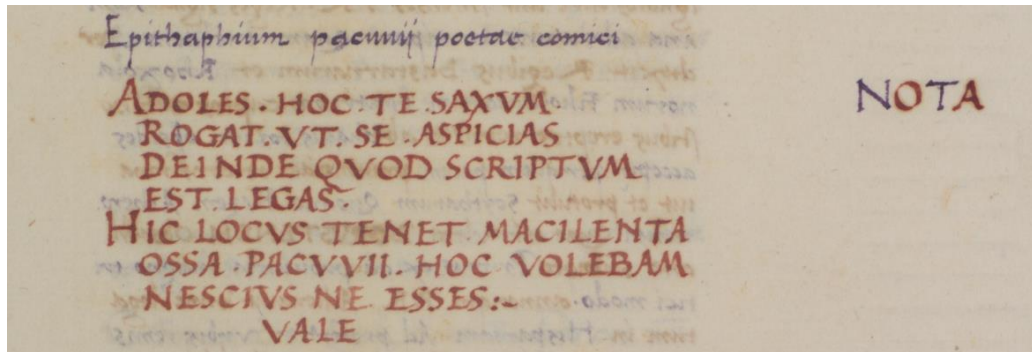 Epithaphium pacuuij poetae comici
ADOLES. HOC TE SAXVM NOTA
ROGAT. VT. SE. ASPICIAS
DEINDE QVOD SCRIPTVM
EST. LEGAS
HIC LOCVS TENET MACILENTA
OSSA. PACVVII. HOC VOLEBAM
NESCIVS NE ESSES:~
VALE